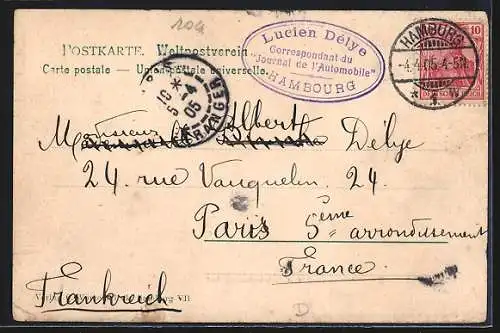 10a
POSTKARTE. Weltpostverein
Carte postale — Union postale universelle.
Lucien Délye
Correspondant du
"Journal de l'Automobile"
HAMBOURG
HAMBURG
4.4.05.4-5N.
10
5-4
05
ETRANGER
Monsieur Albert Délye
24. rue Vauquelin. 24.
Paris 5ème arrondissement
France.
Frankreich
D